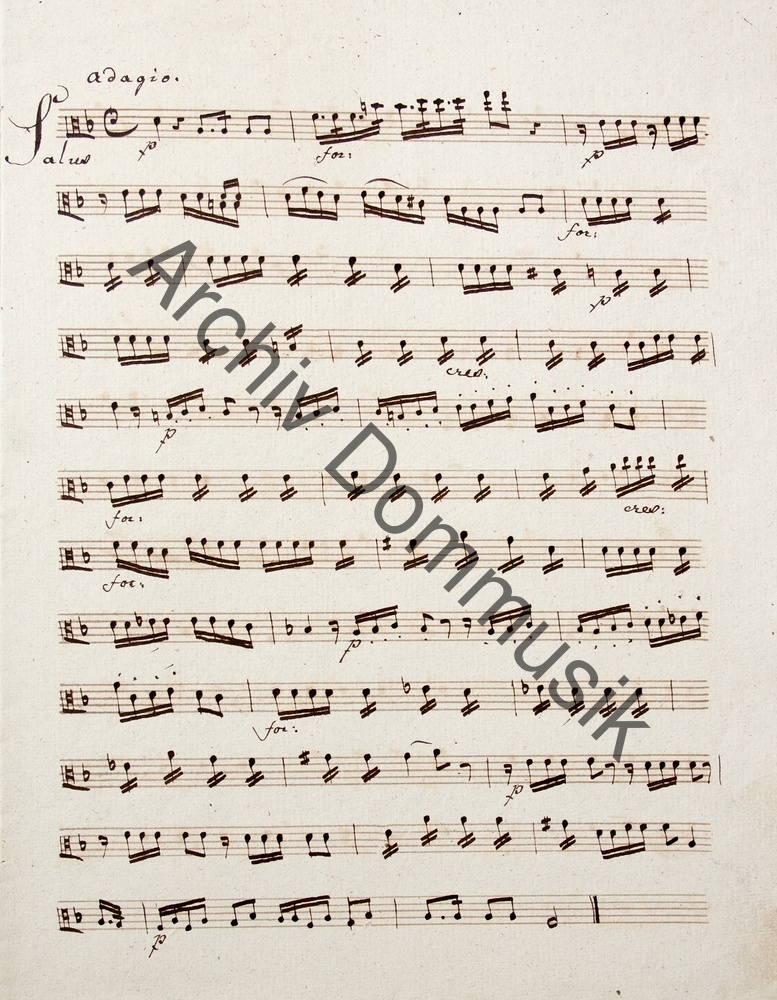 Adagio.
Salus
p for: p
for:
p
cres:
p
for: cres:
for:
p
for:
p
p
Archiv Dommusik